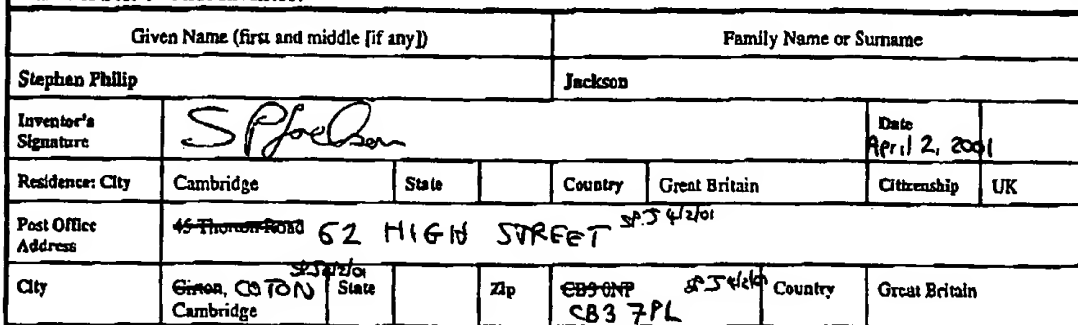 Given Name (first and middle [if any]) Family Name or Surname
Stephen Philip Jackson
Inventor's Signature SPJackson Date April 2, 2001
Residence: City Cambridge State Country Great Britain Citizenship UK
Post Office Address 45 Thornton Road 62 HIGH STREET SPJ 4/2/01
City Girton, COTON Cambridge SPJ 4/2/01 State Zip CB3 0NP CB3 7PL SPJ 4/2/01 Country Great Britain